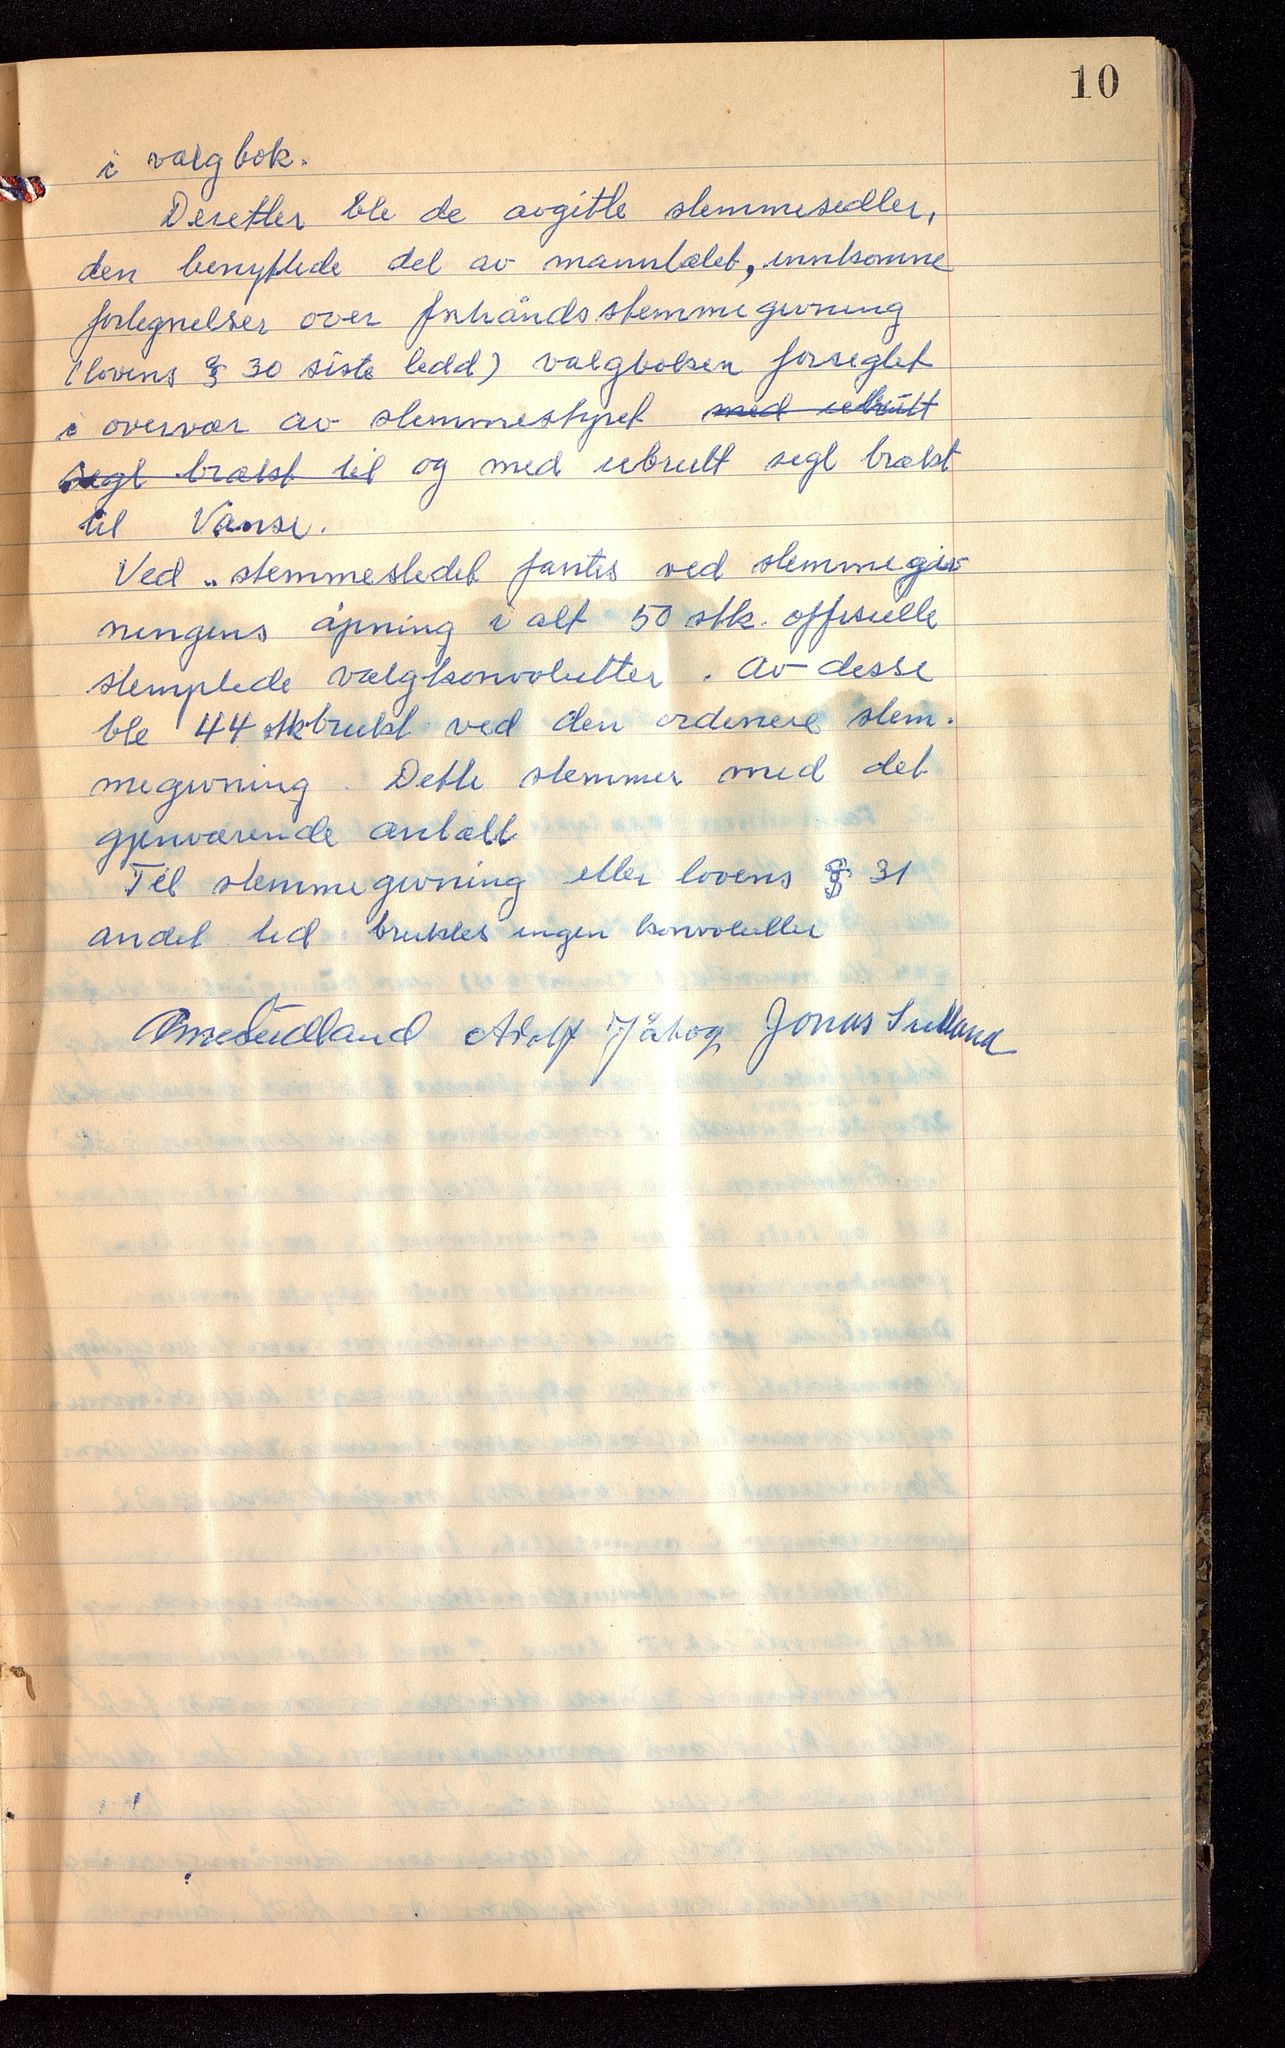 10
i valgbok.
Deretter ble de avgitte stemmesedler,
den benyttede del av manntalet, innkomne
fortegnelser over forhåndsstemmegivning
(lovens § 30 siste ledd) valgboken forseglet
i overvær av stemmestyret med ubrutt
segl brakt til og med ubrutt segl brakt
til Vanse.
Ved stemmestedet fantes ved stemmegiv
ningens åpning i alt 50 stk. offisielle
stemplede valgkonvolutter. Av disse
ble 44 stk brukt ved den ordinere stem-
megivning. Dette stemmer med det
gjenværende antall
Til stemmegivning etter lovens § 31
andet led bruktes ingen konvolutter
Adolf Jonas